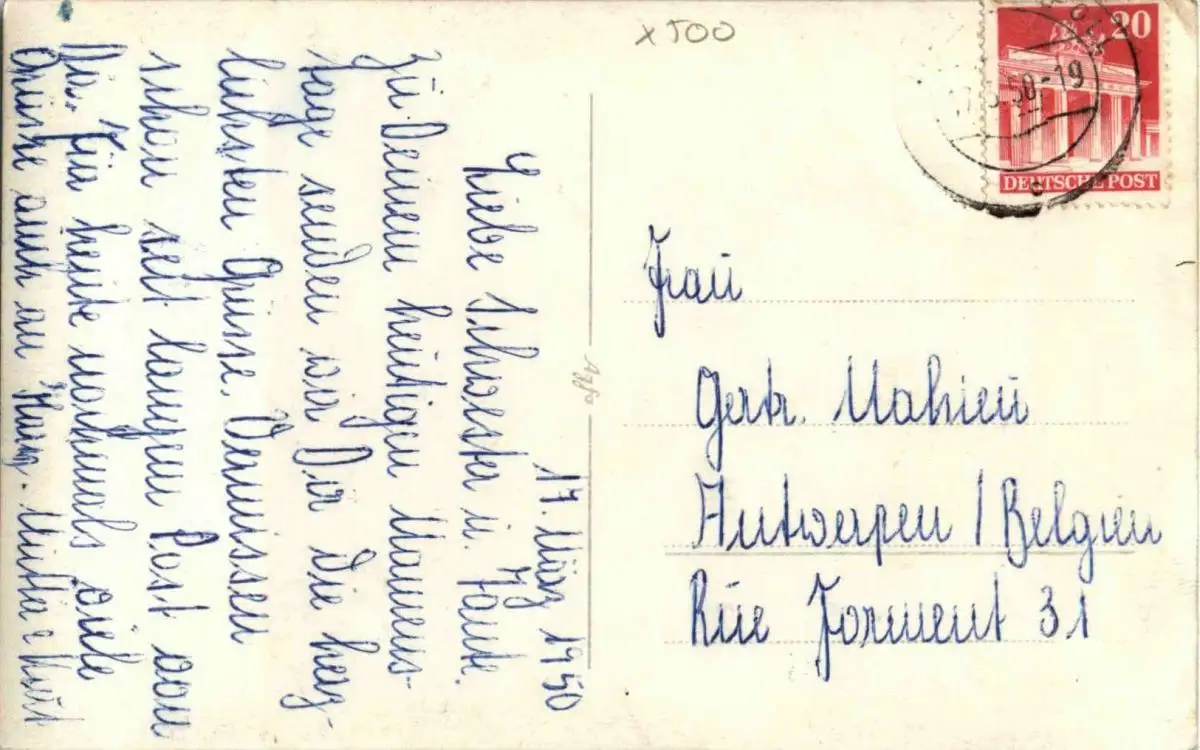 x500
20
50-19
DEUTSCHE POST
17. März 1950
Liebe Schwester u. Tante.
Zu Deinem heutigen Namens-
tage senden wir Dir die herz-
lichsten Grüsse. Vermissen
schon seit langem Post von
Dir. Für heute nochmals viele
Grüsse auch an Mutta & Kurt
Agfa
Frau
Gertr. Mahieu
Antwerpen / Belgien
Rue Forment 31